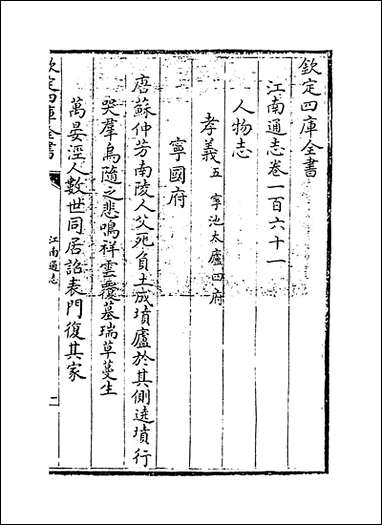 欽定四庫全書
江南通志卷一百六十一
人物志
孝義五 寧池太廬四府
寧國府
唐蘇仲芳南陵人父死負土成墳廬於其側遶墳行
哭羣烏隨之悲鳴祥雲覆墓瑞草蔓生
萬晏涇人數世同居詔表門復其家
欽定四庫全書
江南通志